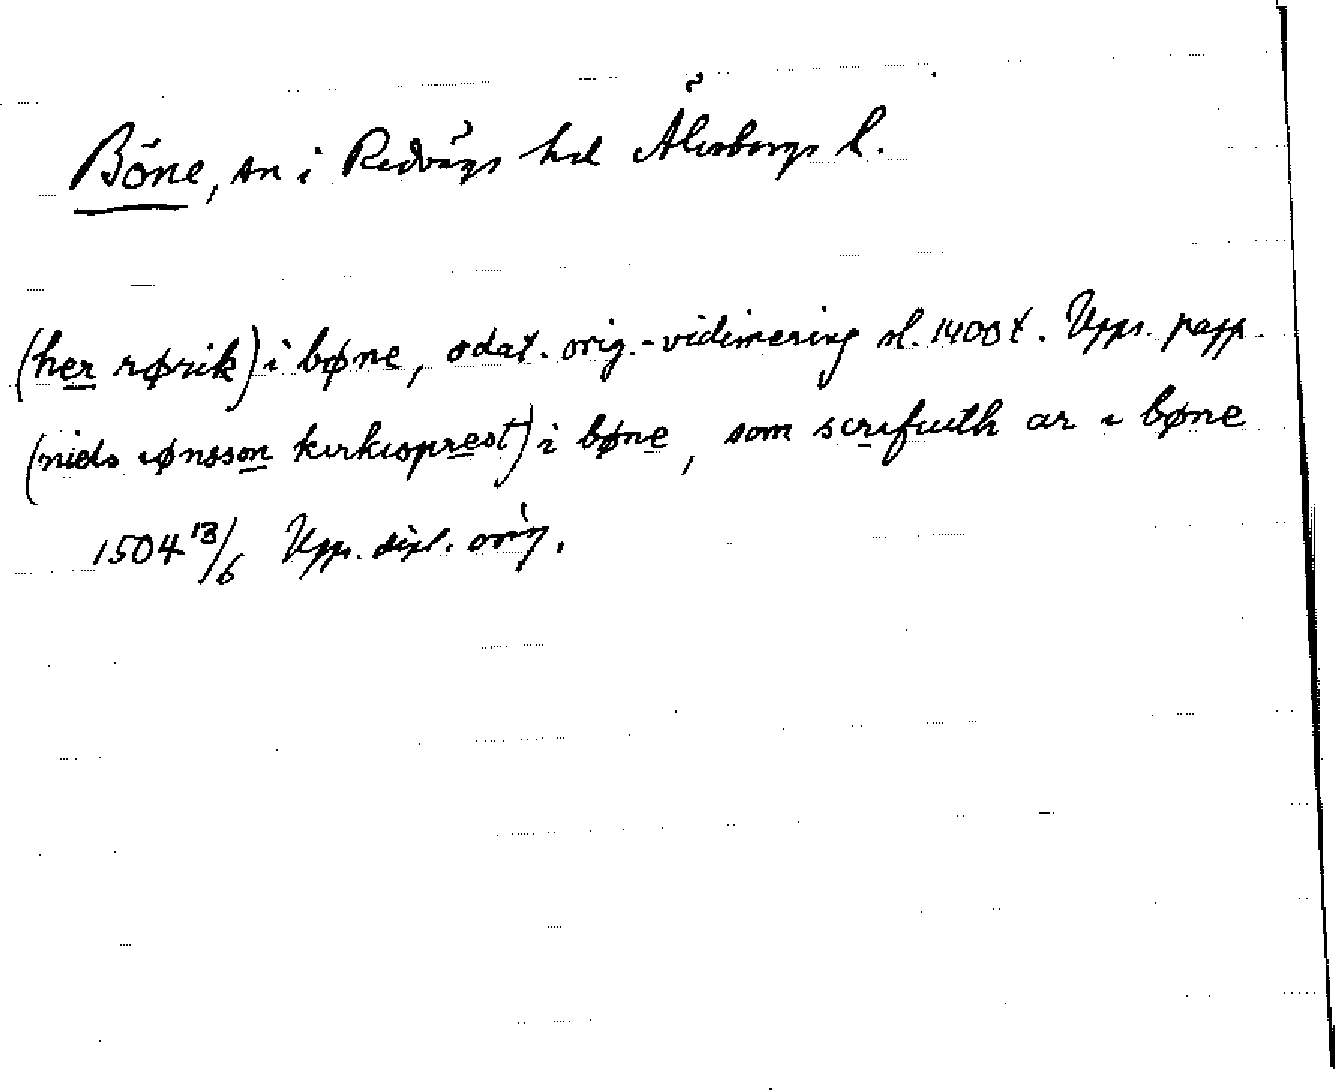 Böne, sn i Redvägs hd Älvsborgs l.
(her rørik) i bøne, odat. orig.-vidimering sl. 1400 t. Upps. papp.
(niels iønsson kirkisprest) i bøne, som scrifuith ar i bøne
1504 13/6 Upps. dipl. orig.